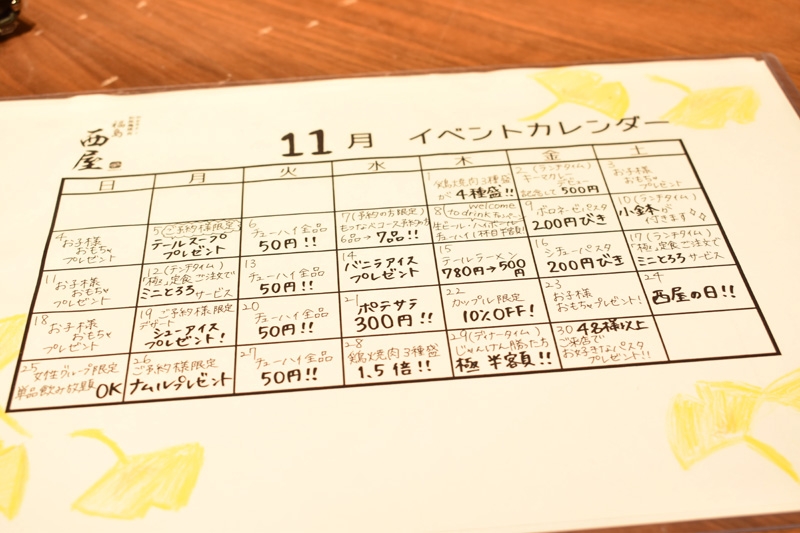 福島
西屋
11月 イベントカレンダー
日 月 火 水 木 金 土
1
鶏焼肉3種盛
が 4種盛!!
2 (ランチタイム)
キーマカレー
デビュー
記念して500円
3
お子様
おもちゃ
プレゼント
4
お子様
おもちゃ
プレゼント
5(ご予約様限定)
テールスープ
プレゼント
6
チューハイ全品
50円!!
7(予約の方限定)
もつなべコース予約の方
6品→7品!!
8 welcome
to drink キャンペーン
生ビール・ハイボール
チューハイ1杯目半額!
9
ボロネーゼパスタ
200円びき
10(ランチタイム)
小金本が
付きます
11
お子様
おもちゃ
プレゼント
12(ランチタイム)
「極」定食ご注文で
ミニとろろサービス
13
チューハイ全品
50円!!
14
バニラアイス
プレゼント
15
テールラーメン
780円→500円
16
シチューパスタ
200円びき
17(ランチタイム)
「極」定食ご注文で
ミニとろろサービス
18
お子様
おもちゃ
プレゼント
19 ご予約様限定
デザート
シューアイス
プレゼント!
20
チューハイ全品
50円!!
21
ポテサラ
300円!!
22
カップル限定
10%OFF!
23
お子様
おもちゃプレゼント!
24
西屋の日!!
25
女性グループ限定
単品飲み放題 OK
26
ご予約様限定
ナムルプレゼント
27
チューハイ全品
50円!!
28
鶏焼肉3種盛
1.5倍!!
29(ディナータイム)
じゃんけん勝ったら
極 半額!!
30 4名様以上
ご来店で
お好きなパスタ
プレゼント!!